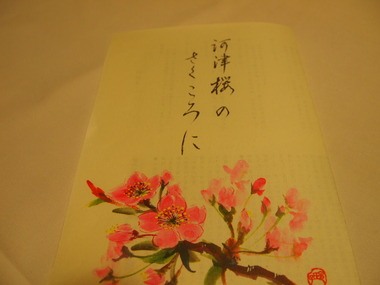 河津桜の
さくころに